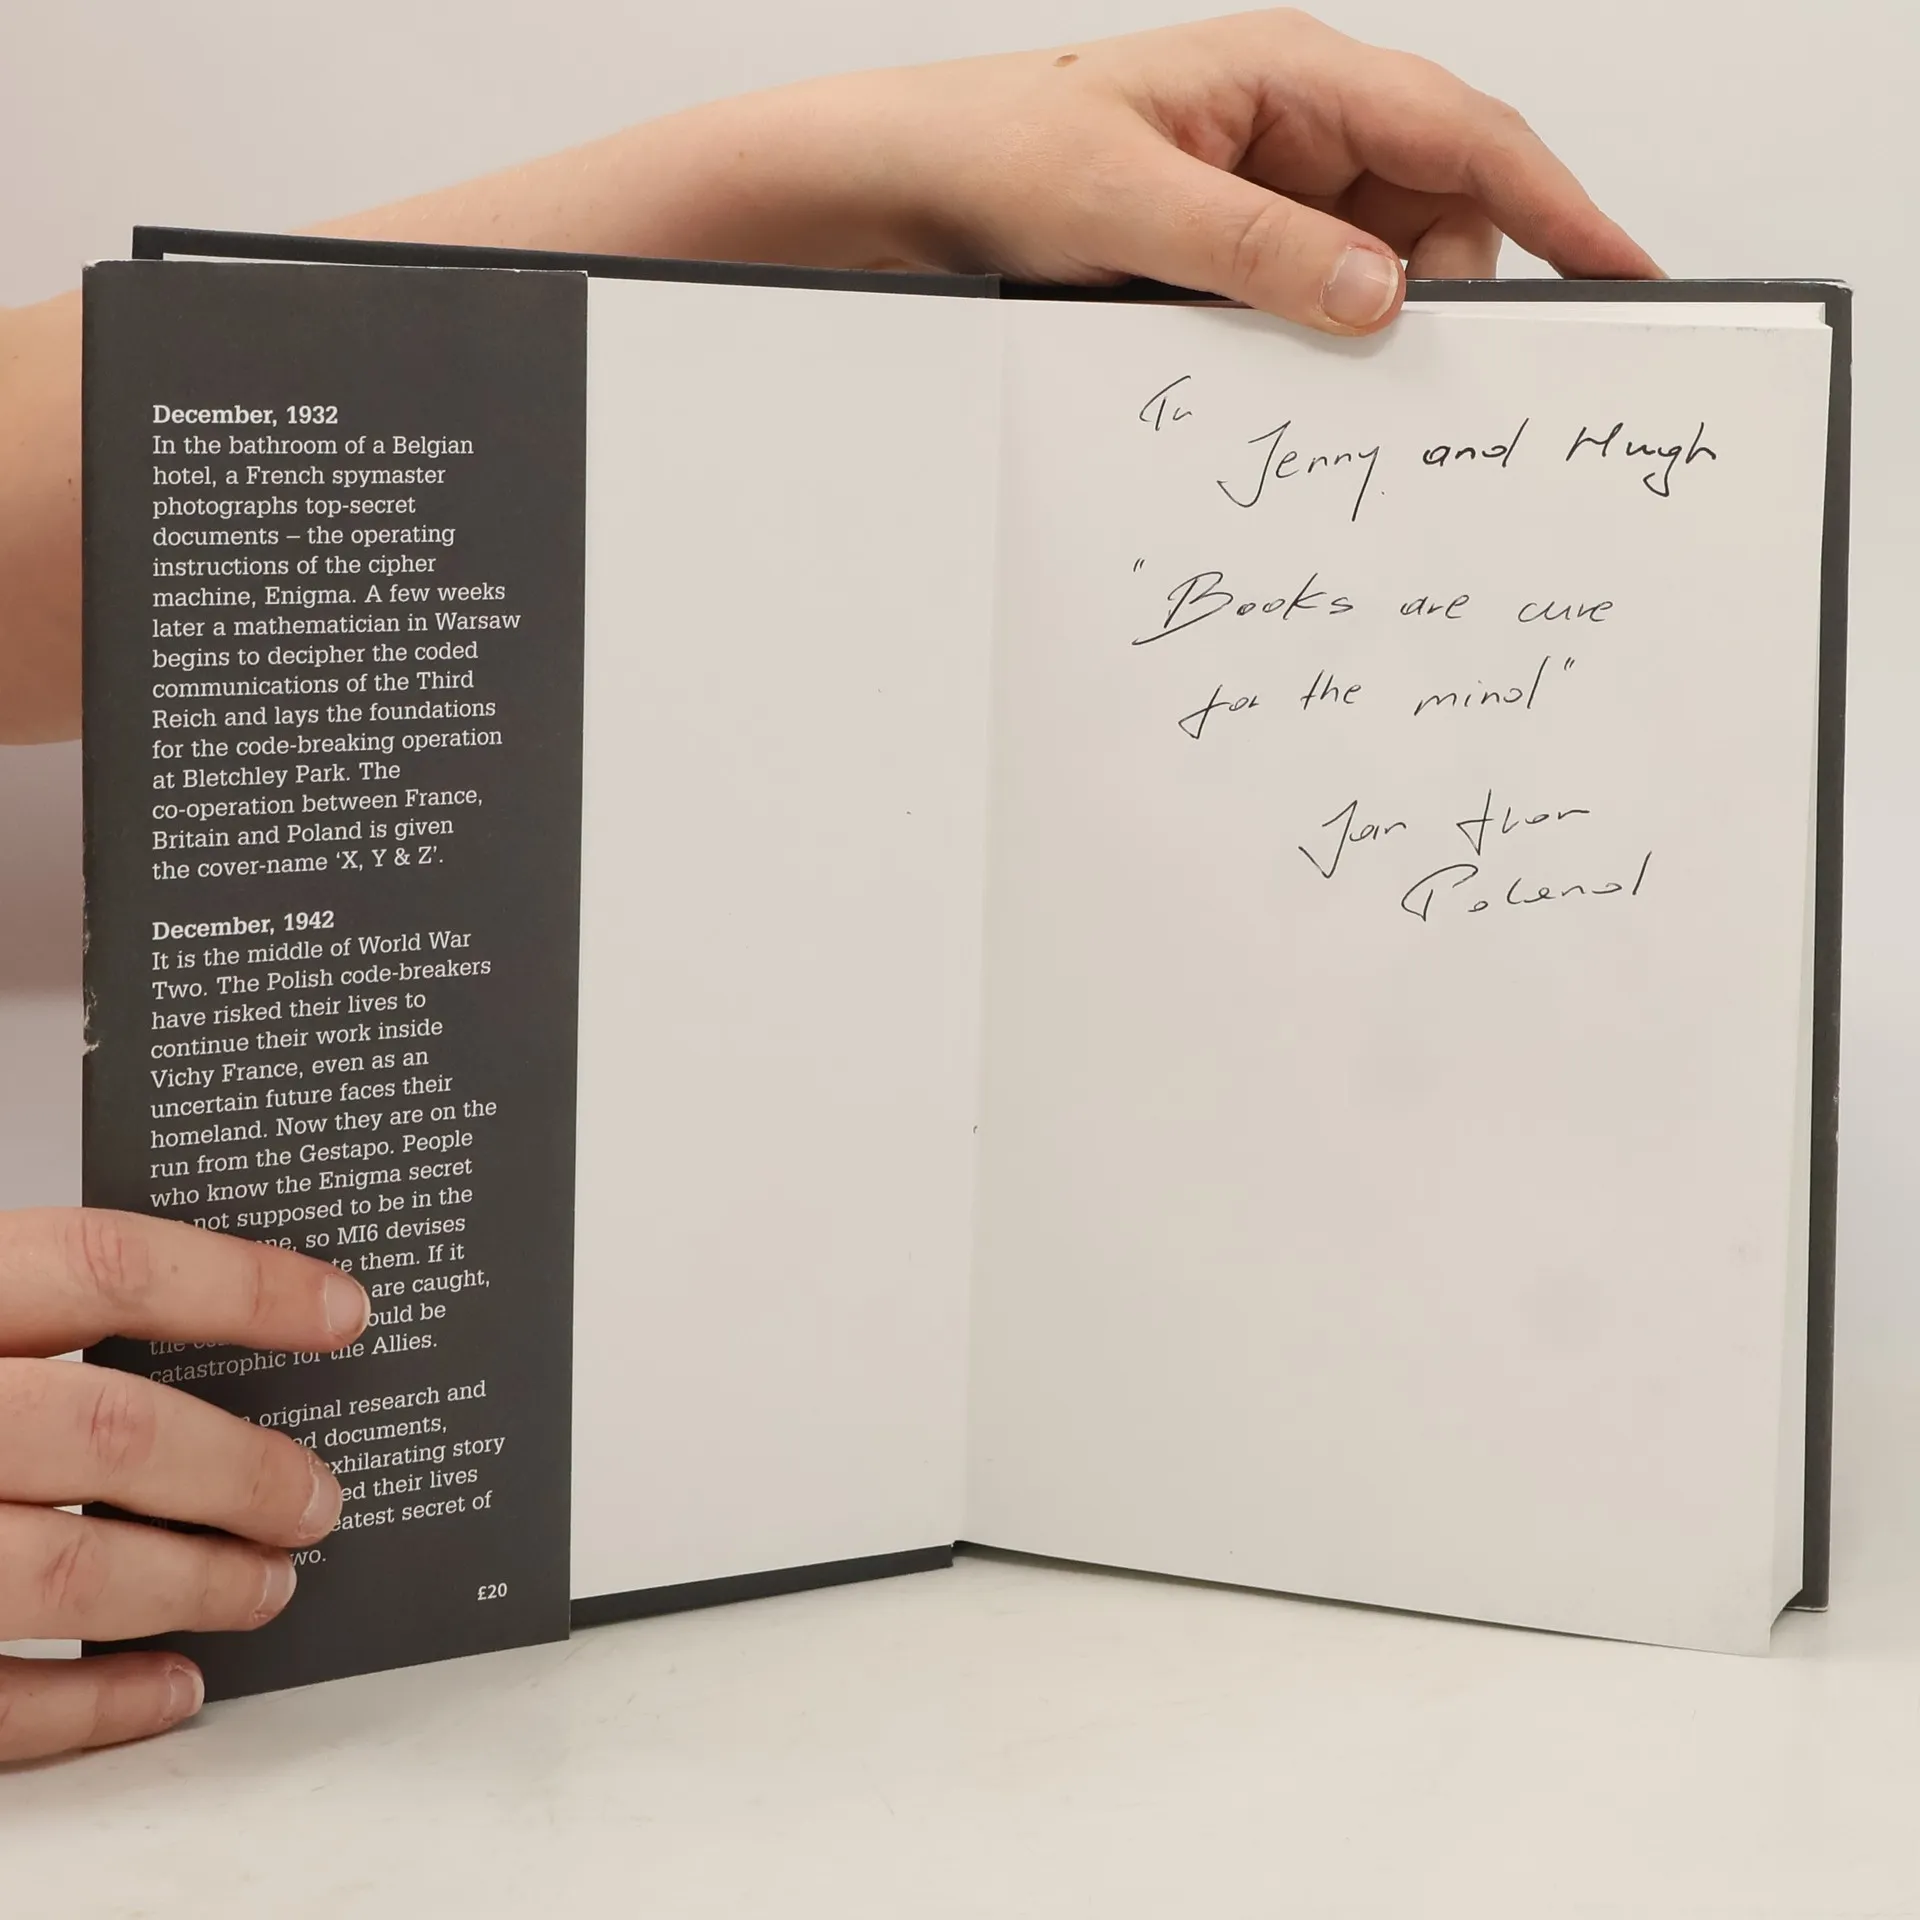 December, 1932
In the bathroom of a Belgian
hotel, a French spymaster
photographs top-secret
documents – the operating
instructions of the cipher
machine, Enigma. A few weeks
later a mathematician in Warsaw
begins to decipher the coded
communications of the Third
Reich and lays the foundations
for the code-breaking operation
at Bletchley Park. The
co-operation between France,
Britain and Poland is given
the cover-name ‘X, Y & Z’.
December, 1942
It is the middle of World War
Two. The Polish code-breakers
have risked their lives to
continue their work inside
Vichy France, even as an
uncertain future faces their
homeland. Now they are on the
run from the Gestapo. People
who know the Enigma secret
not supposed to be in the
so MI6 devises
them. If it
are caught,
be
the
catastrophic for the Allies.
original research and
documents,
story
their lives
secret of
£20
Jenny and Hugh
"Books are cure
for the mind"
Jan from
Poland